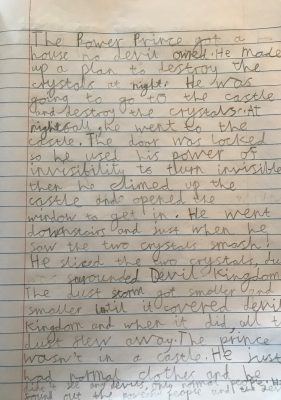 The Power Prince got a
house no devil owned. He made
up a plan to destroy the
crystals at night. He was
going to go to the castle
and destroy the crystals. At
nightfall, he went to the
castle. The door was locked
so he used his power of
invisibility to tturn invisible
then he climed up the
castle and opened the
window to get in. He went
downstairs and just when he
saw the two crystals smash!
He sliced the two crystals, du
surounded Devil Kingdom
The dust storm got smaller and
smaller until it covered devil
Kingdom and when it did, all t
dust flew away. The prince
wasn't in a castle. He just
had normal clothes and he
see any devils, only normal people. He
found out the people and